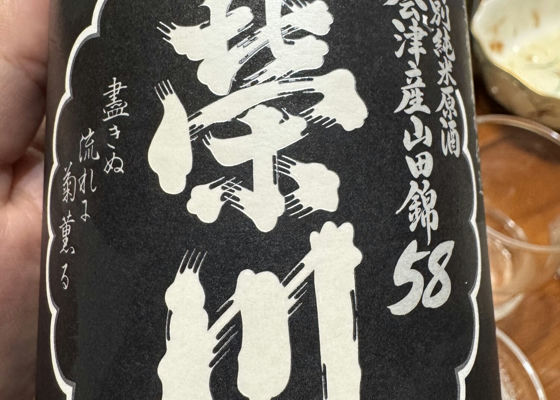 別純米原酒
会津産山田錦58
榮川
盡きぬ
流れに
菊薫る